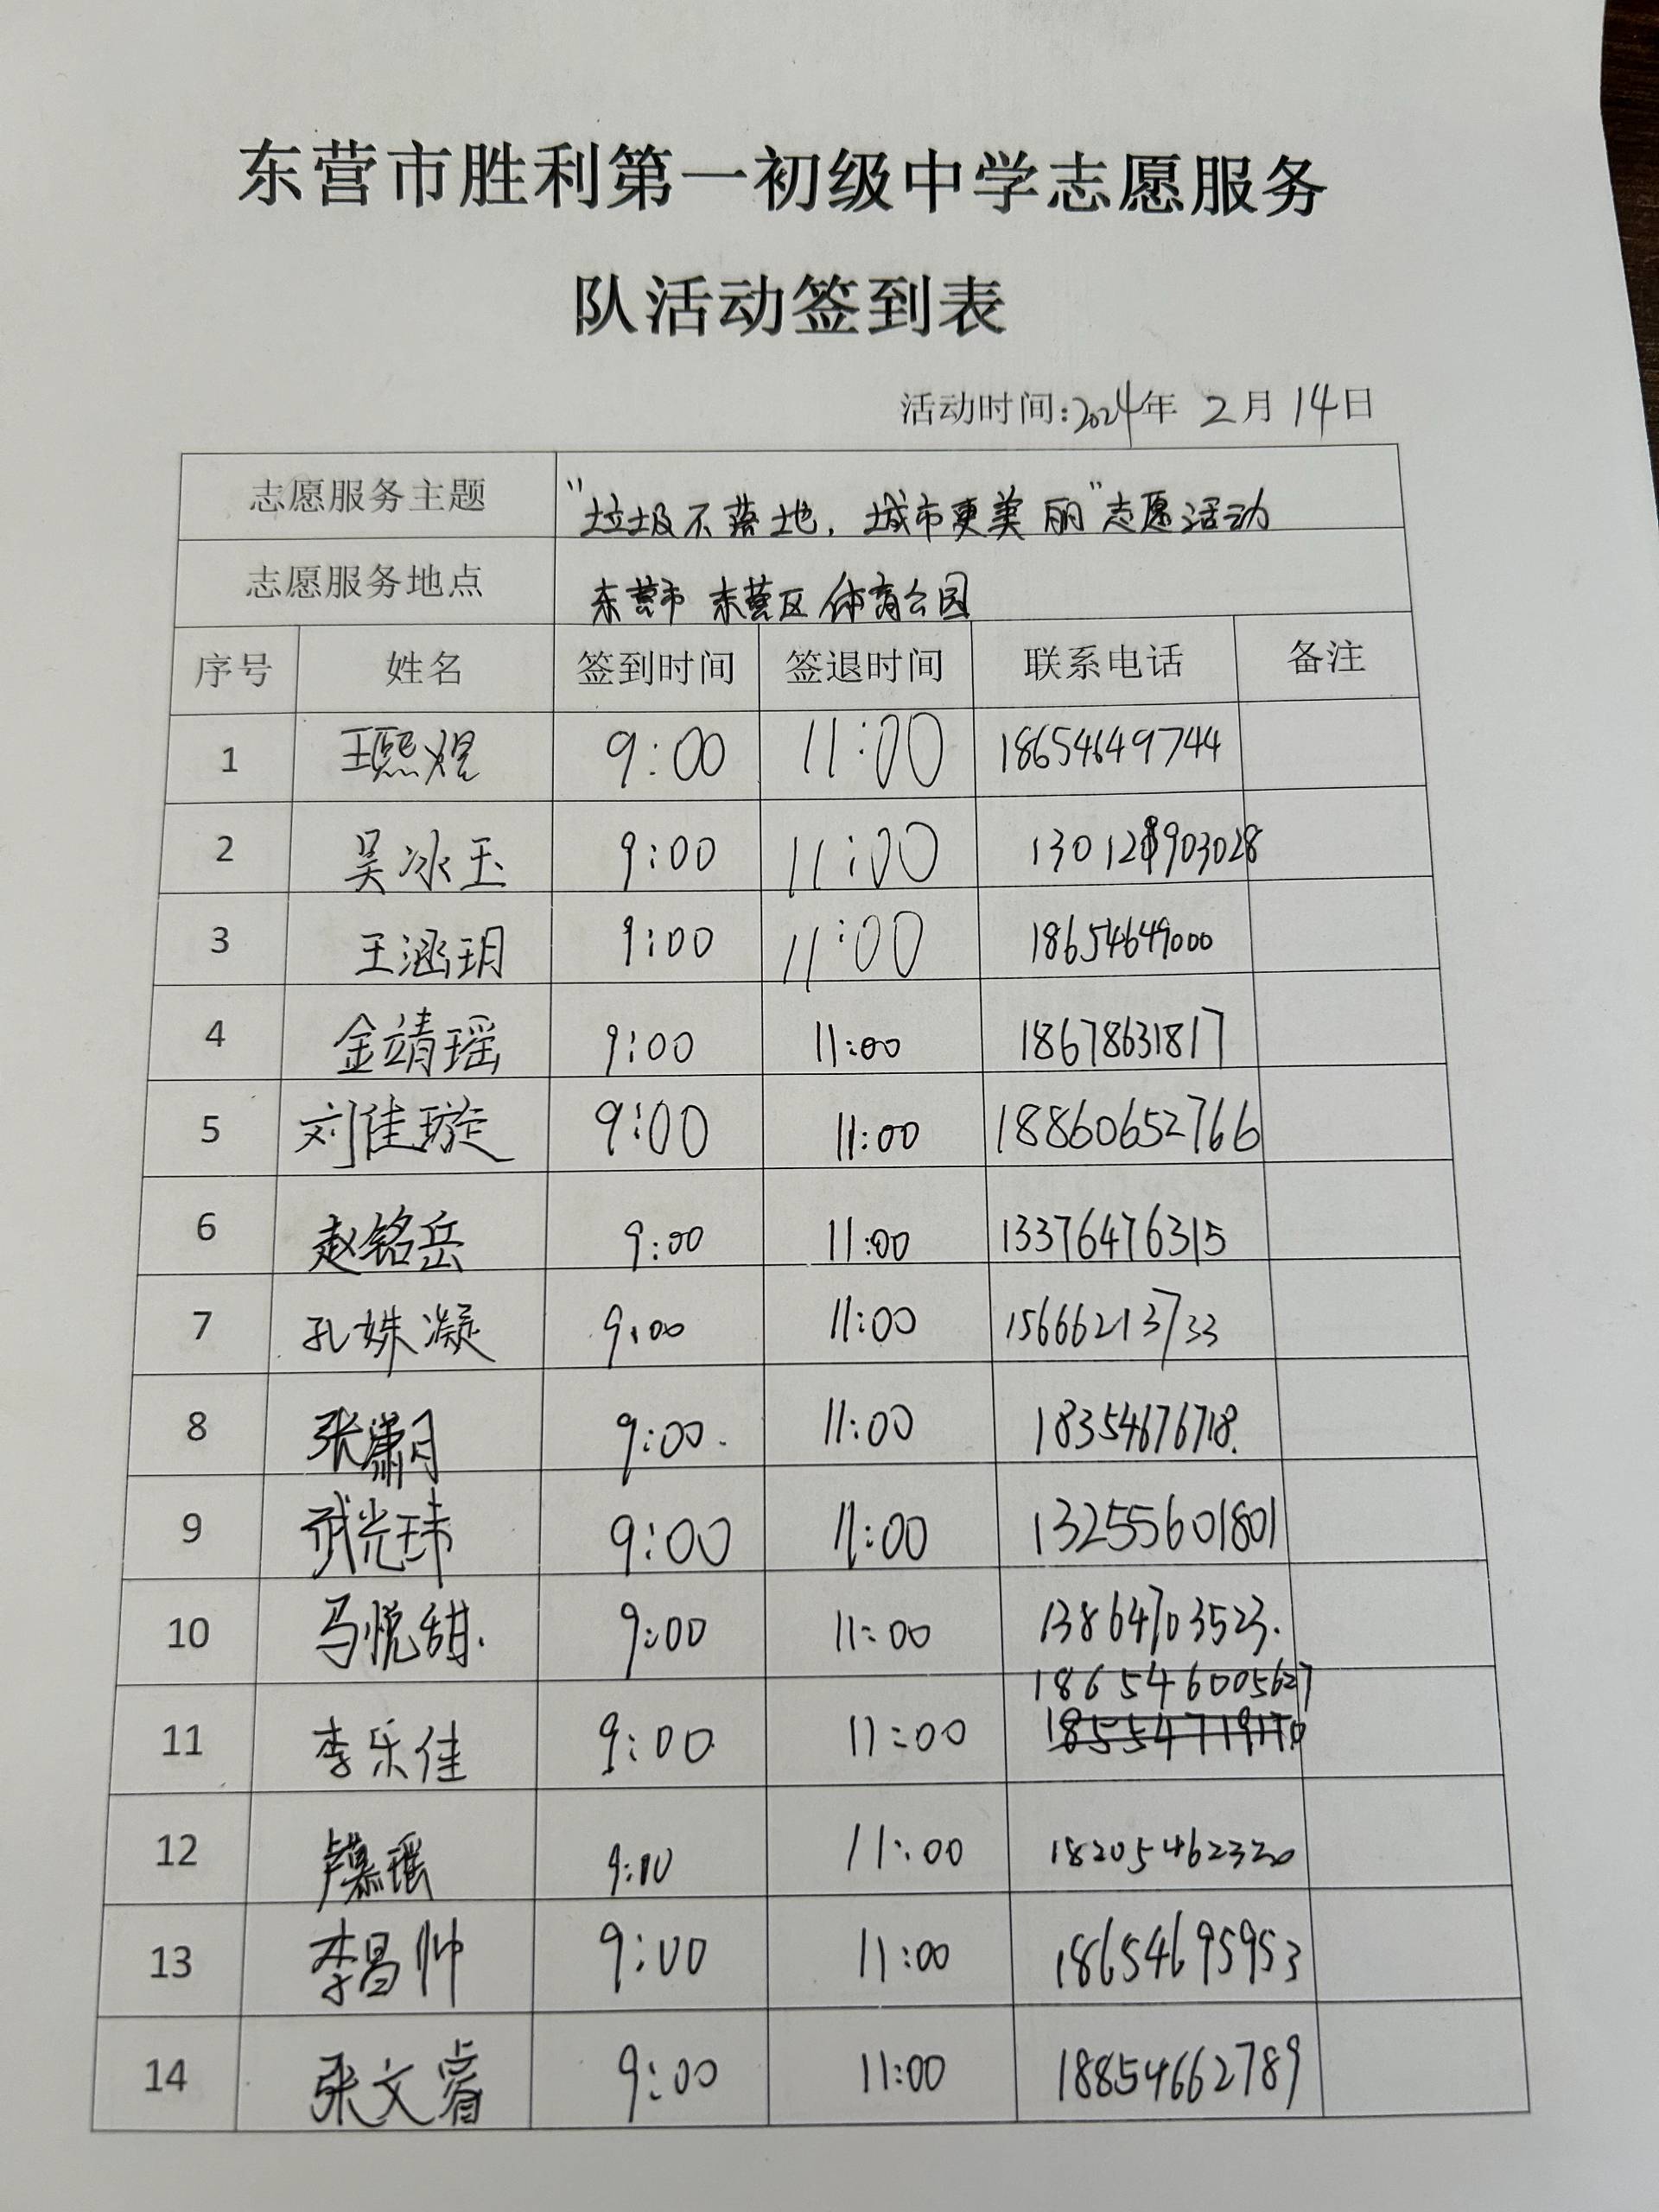 东营市胜利第一初级中学志愿服务
队活动签到表
活动时间:2024年 2月14日
志愿服务主题 “垃圾不落地，城市更美丽”志愿活动
志愿服务地点 东营市 东营区 体育公园
序号 姓名 签到时间 签退时间 联系电话 备注
1 王熙煜 9:00 11:00 18654649744
2 吴冰玉 9:00 11:00
3 王涵玥 9:00 11:00 18654649000
4 金靖瑶 9:00 11:00 18678631817
5 刘佳璇 9:00 11:00 18860652766
6 赵铭岳 9:00 11:00 13376476315
7 孔姝凝 9:00 11:00 15666213733
8 张潇月 9:00. 11:00 18354676718.
9 武光玮 9:00 11:00 13255601801
10 马悦甜. 9:00 11:00 13864703523.
186546005627
11 李乐佳 9:00 11:00 18554719170
12 9:00 11:00 18205462320
13 李昌帅 9:00 11:00 18654695953
14 张文睿 9:00 11:00 18854662789